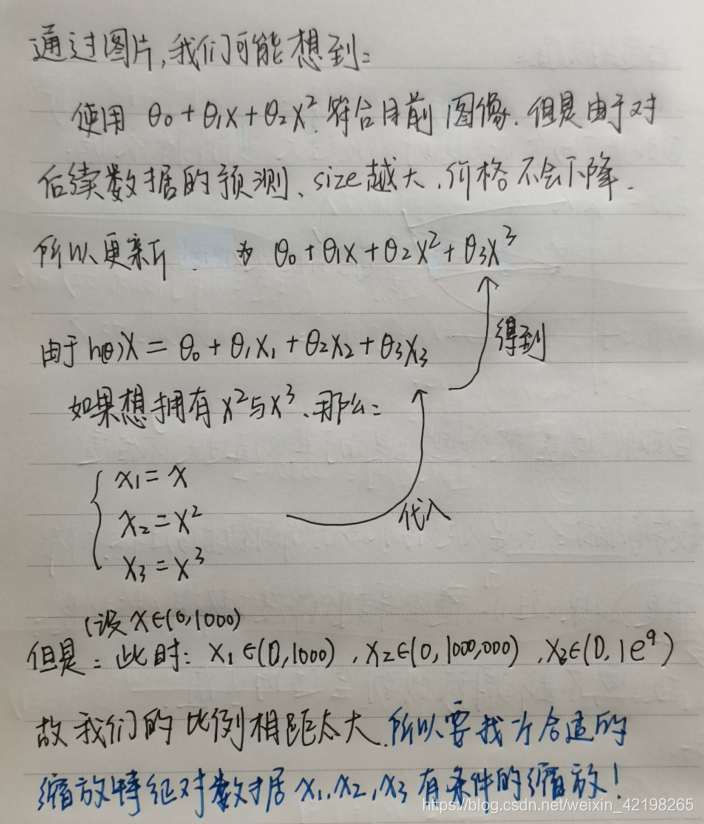 通过图片,我们可能想到:
使用 θ0+θ1x+θ2x² 符合目前图像. 但是由于对
后续数据的预测、size越大,价格不会下降.
所以更新 为 θ0+θ1x+θ2x²+θ3x³
由于h(θ)x = θ0+θ1x1+θ2x2+θ3x3
得到
如果想拥有x²与x³、那么:
x1=x
x2=x²
x3=x³
代入
(设x∈(0,1000)
但是: 此时: x1∈(0,1000) ,x2∈(0,1000,000) ,x3∈(0,1e⁹)
故我们的比例相距太大.所以要找个合适的
缩放特征对数据x1,x2,x3有条件的缩放!
https://blog.csdn.net/weixin_42198265